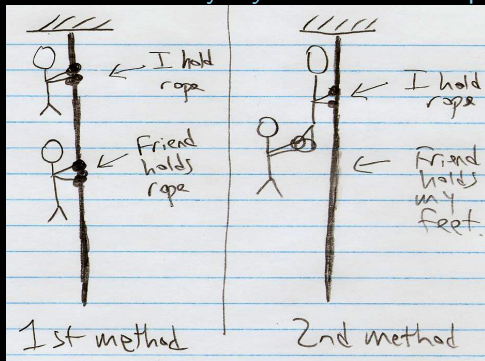 I hold
rope
Friend
holds
rope
1st method
I hold
rope
Friend
holds
my
feet.
2nd method